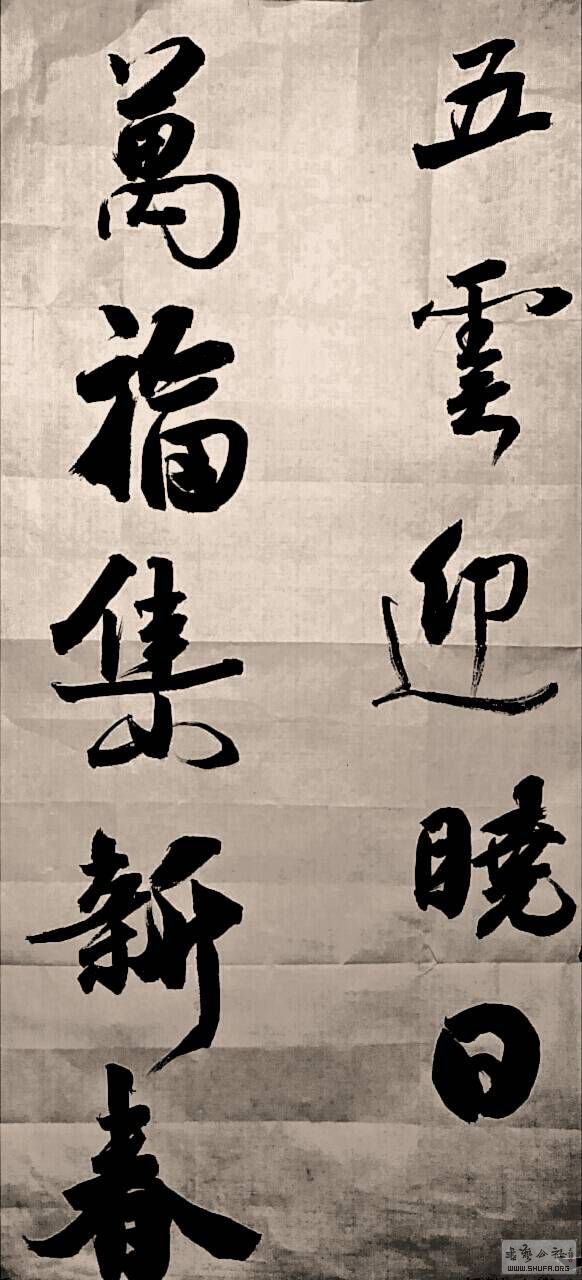 五雲迎曉日
萬福集新春
书法公社
WWW.SHUFA.ORG